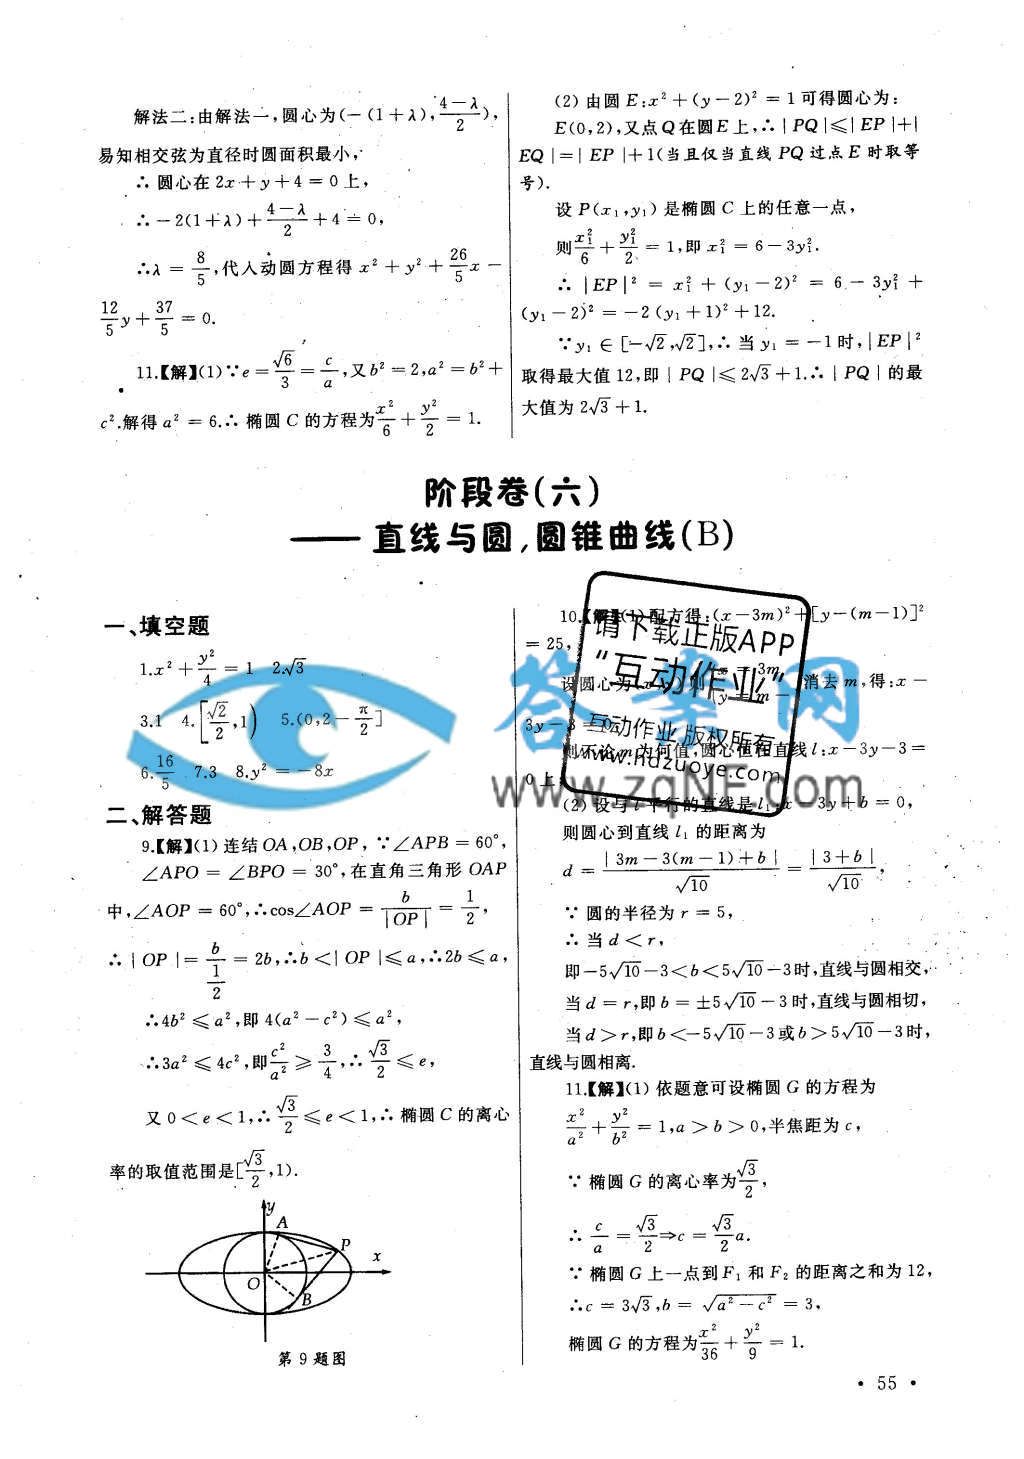 解法二:由解法一,圆心为(-(1+λ),(4-λ)/2),
易知相交弦为直径时圆面积最小,
∴圆心在2x+y+4=0上,
∴-2(1+λ)+(4-λ)/2+4=0,
∴λ=8/5,代入动圆方程得 x²+y²+26/5x-
12/5y+37/5=0.
11.【解】(1)∵e=√6/3=c/a,又b²=2,a²=b²+
c²,解得a²=6.∴椭圆C的方程为x²/6+y²/2=1.
(2)由圆E:x²+(y-2)²=1可得圆心为:
E(0,2),又点Q在圆E上,∴|PQ|≤|EP|+|
EQ|=|EP|+1(当且仅当直线PQ过点E时取等
号).
设P(x₁,y₁)是椭圆C上的任意一点,
则x₁²/6+y₁²/2=1,即x₁²=6-3y₁².
∴|EP|²=x₁²+(y₁-2)²=6-3y₁²+
(y₁-2)²=-2(y₁+1)²+12.
∵y₁∈[-√2,√2],∴当y₁=-1时,|EP|²
取得最大值12,即|PQ|≤2√3+1.∴|PQ|的最
大值为2√3+1.
阶段卷(六)
——直线与圆,圆锥曲线(B)
一、填空题
1.x²+y²/4=1 2.√3
3.1 4.[√2/2,1) 5.(0,2-π/2]
6.16/5 7.3 8.y²=-8x
二、解答题
9.【解】(1)连结OA,OB,OP,∵∠APB=60°,
∠APO=∠BPO=30°,在直角三角形OAP
中,∠AOP=60°,∴cos∠AOP=b/|OP|=1/2,
∴|OP|=b/(1/2)=2b,∴b<|OP|≤a,∴2b≤a,
∴4b²≤a²,即4(a²-c²)≤a²,
∴3a²≤4c²,即c²/a²≥3/4,∴√3/2≤e,
又0<e<1,∴√3/2≤e<1,∴椭圆C的离心
率的取值范围是[√3/2,1).
y
A
P
x
O
B
第9题图
10.【解】(1)配方得:(x-3m)²+[y-(m-1)]²
=25,
设圆心为(x,y),则 x=3m y=m- 消去m,得:x-
3y-3=0
则不论m为何值,圆心恒在直线l:x-3y-3=
0上
(2)设与l平行的直线是l₁:x-3y+b=0,
则圆心到直线l₁的距离为
d=|3m-3(m-1)+b|/√10=|3+b|/√10,
∵圆的半径为r=5,
∴当d<r,
即-5√10-3<b<5√10-3时,直线与圆相交,
当d=r,即b=±5√10-3时,直线与圆相切,
当d>r,即b<-5√10-3或b>5√10-3时,
直线与圆相离.
11.【解】(1)依题意可设椭圆G的方程为
x²/a²+y²/b²=1,a>b>0,半焦距为c,
∵椭圆G的离心率为√3/2,
∴c/a=√3/2⇒c=√3/2a.
∵椭圆G上一点到F₁和F₂的距离之和为12,
∴c=3√3,b=√(a²-c²)=3,
椭圆G的方程为x²/36+y²/9=1.
·55·
请下载正版APP
"互动作业"
互动作业 版权所有
www.hdzuoye.com
答案网
www.zqNF.com